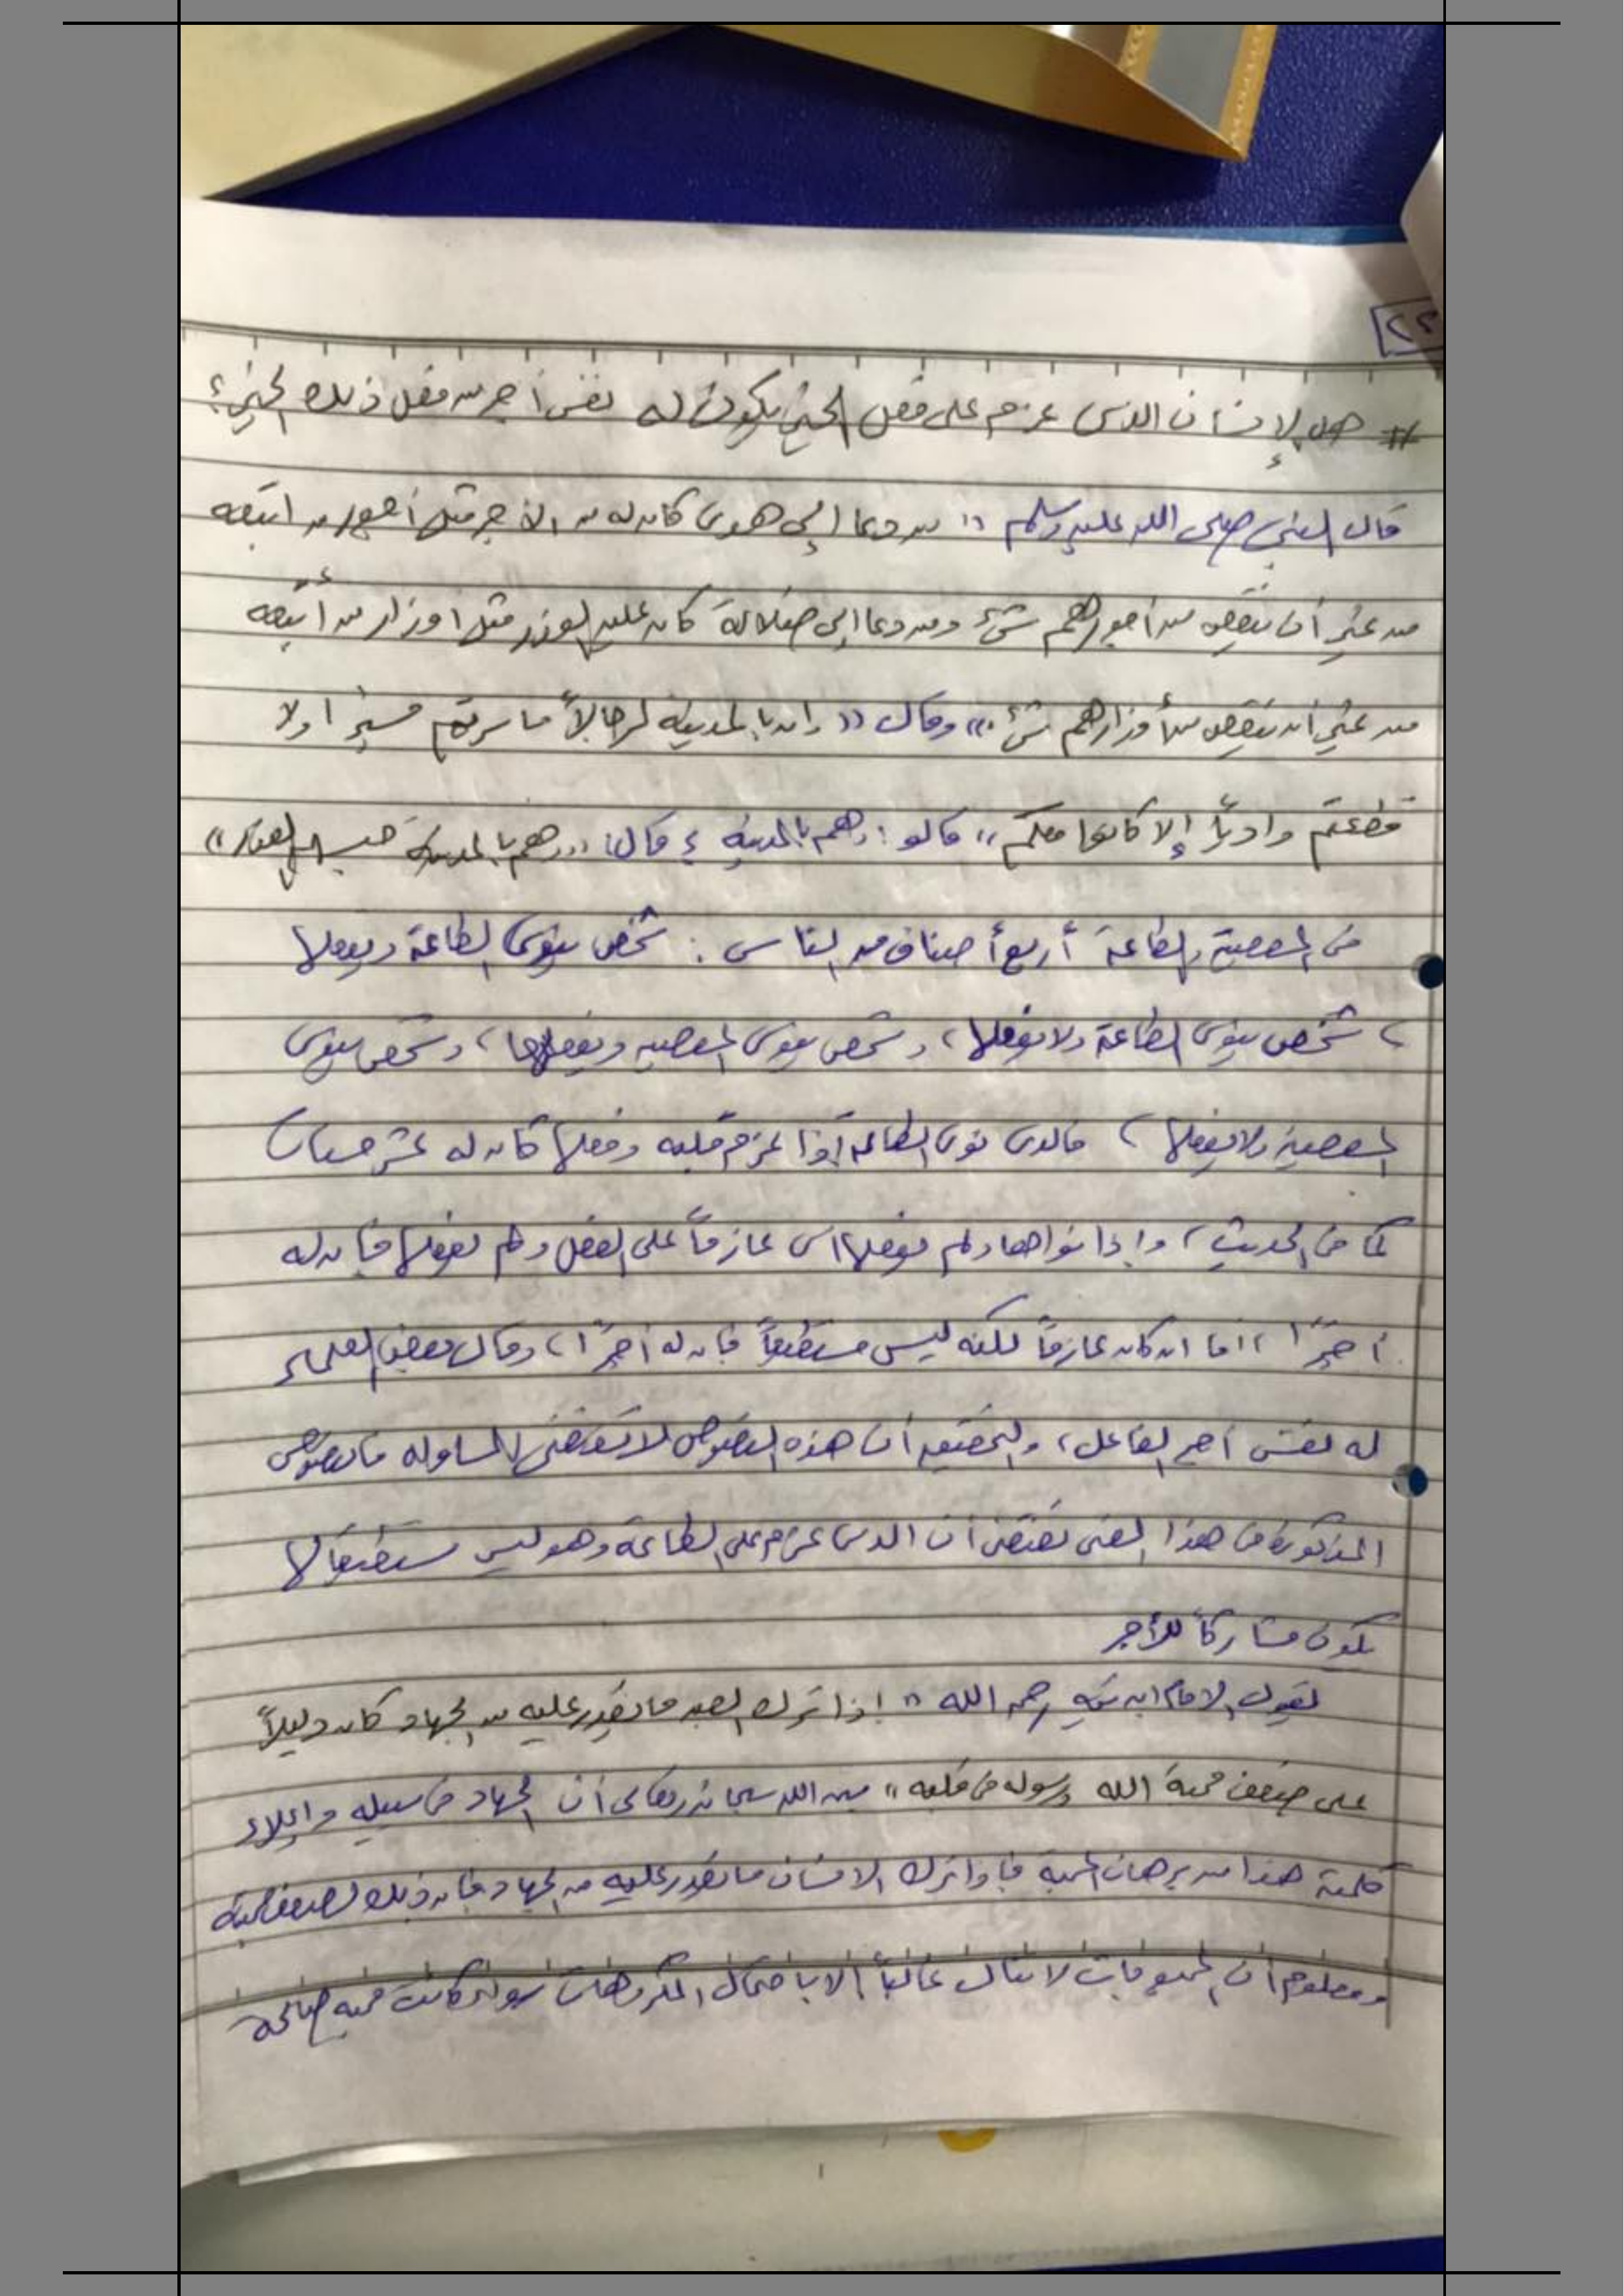 ٢٢
# هل الإنسان الذي عزم على فعل الخير يكون له نفس أجر من فعل ذلك الخير؟
قال النبي صلى الله عليه وسلم " من دعا إلى هدى كان له من الأجر مثل أجور من اتبعه
من غير أن ينقص من أجورهم شيء ومن دعا إلى ضلالة كان عليه الوزر مثل اوزار من أتبعه
من غير أن ينقص من أوزارهم شيء." وقال " وان بالمدينة لرجالاً ما سرتم مسيرا ولا
قطعتم وادياً إلا كانوا معكم" قالو: وهم بالمدينه ؟ قال: "وهم بالمدينة حبسهم العذر"
في المعصية والطاعة أربع أصناف من الناس : شخص ينوي الطاعة ويفعلها
، شخص ينوي الطاعة ولا يفعلها، وشخص ينوي المعصيه ويفعلها، وشخص ينوي
المعصية ولا يفعلها ، فالذي نوى الطاعة إذا عزم قلبه وفعلها كان له عشر حسنات
كما في الحديث، وإذا نواها ولم يفعلها اي عازماً على الفعل ولم يفعلها فإن له
أجرًا ، اما ان كان عازماً لكنه ليس مستطيعاً فإن له أجرًا ، وقال بعض العلماء
له نفس اجر الفاعل، والتحقيق أن هذه النصوص لا تقتضي المساوله فالنصوص
المذكورة في هذا المعنى تقتضي أن الذي عزم على الطاعة وهو ليس مستطيعا لها
يكون مشاركاً للأجر
يقول الامام ابن تيميه رحمه الله " إذا ترك العبد ما يقدر عليه من الجهاد كان دليلاً
على ضعف محبة الله ورسوله في قلبه" بين الله سبحانه وتعالى أن الجهاد في سبيله وإعلاء
كلمته هذا من برهان المحبة فإذا ترك الانسان ما يقدر عليه من الجهاد فإن ذلك لضعف المحبة
ومعلوم أن المحبوبات لا تنال غالباً إلا باحتمال المكروهات سواء كانت محبه صالحة